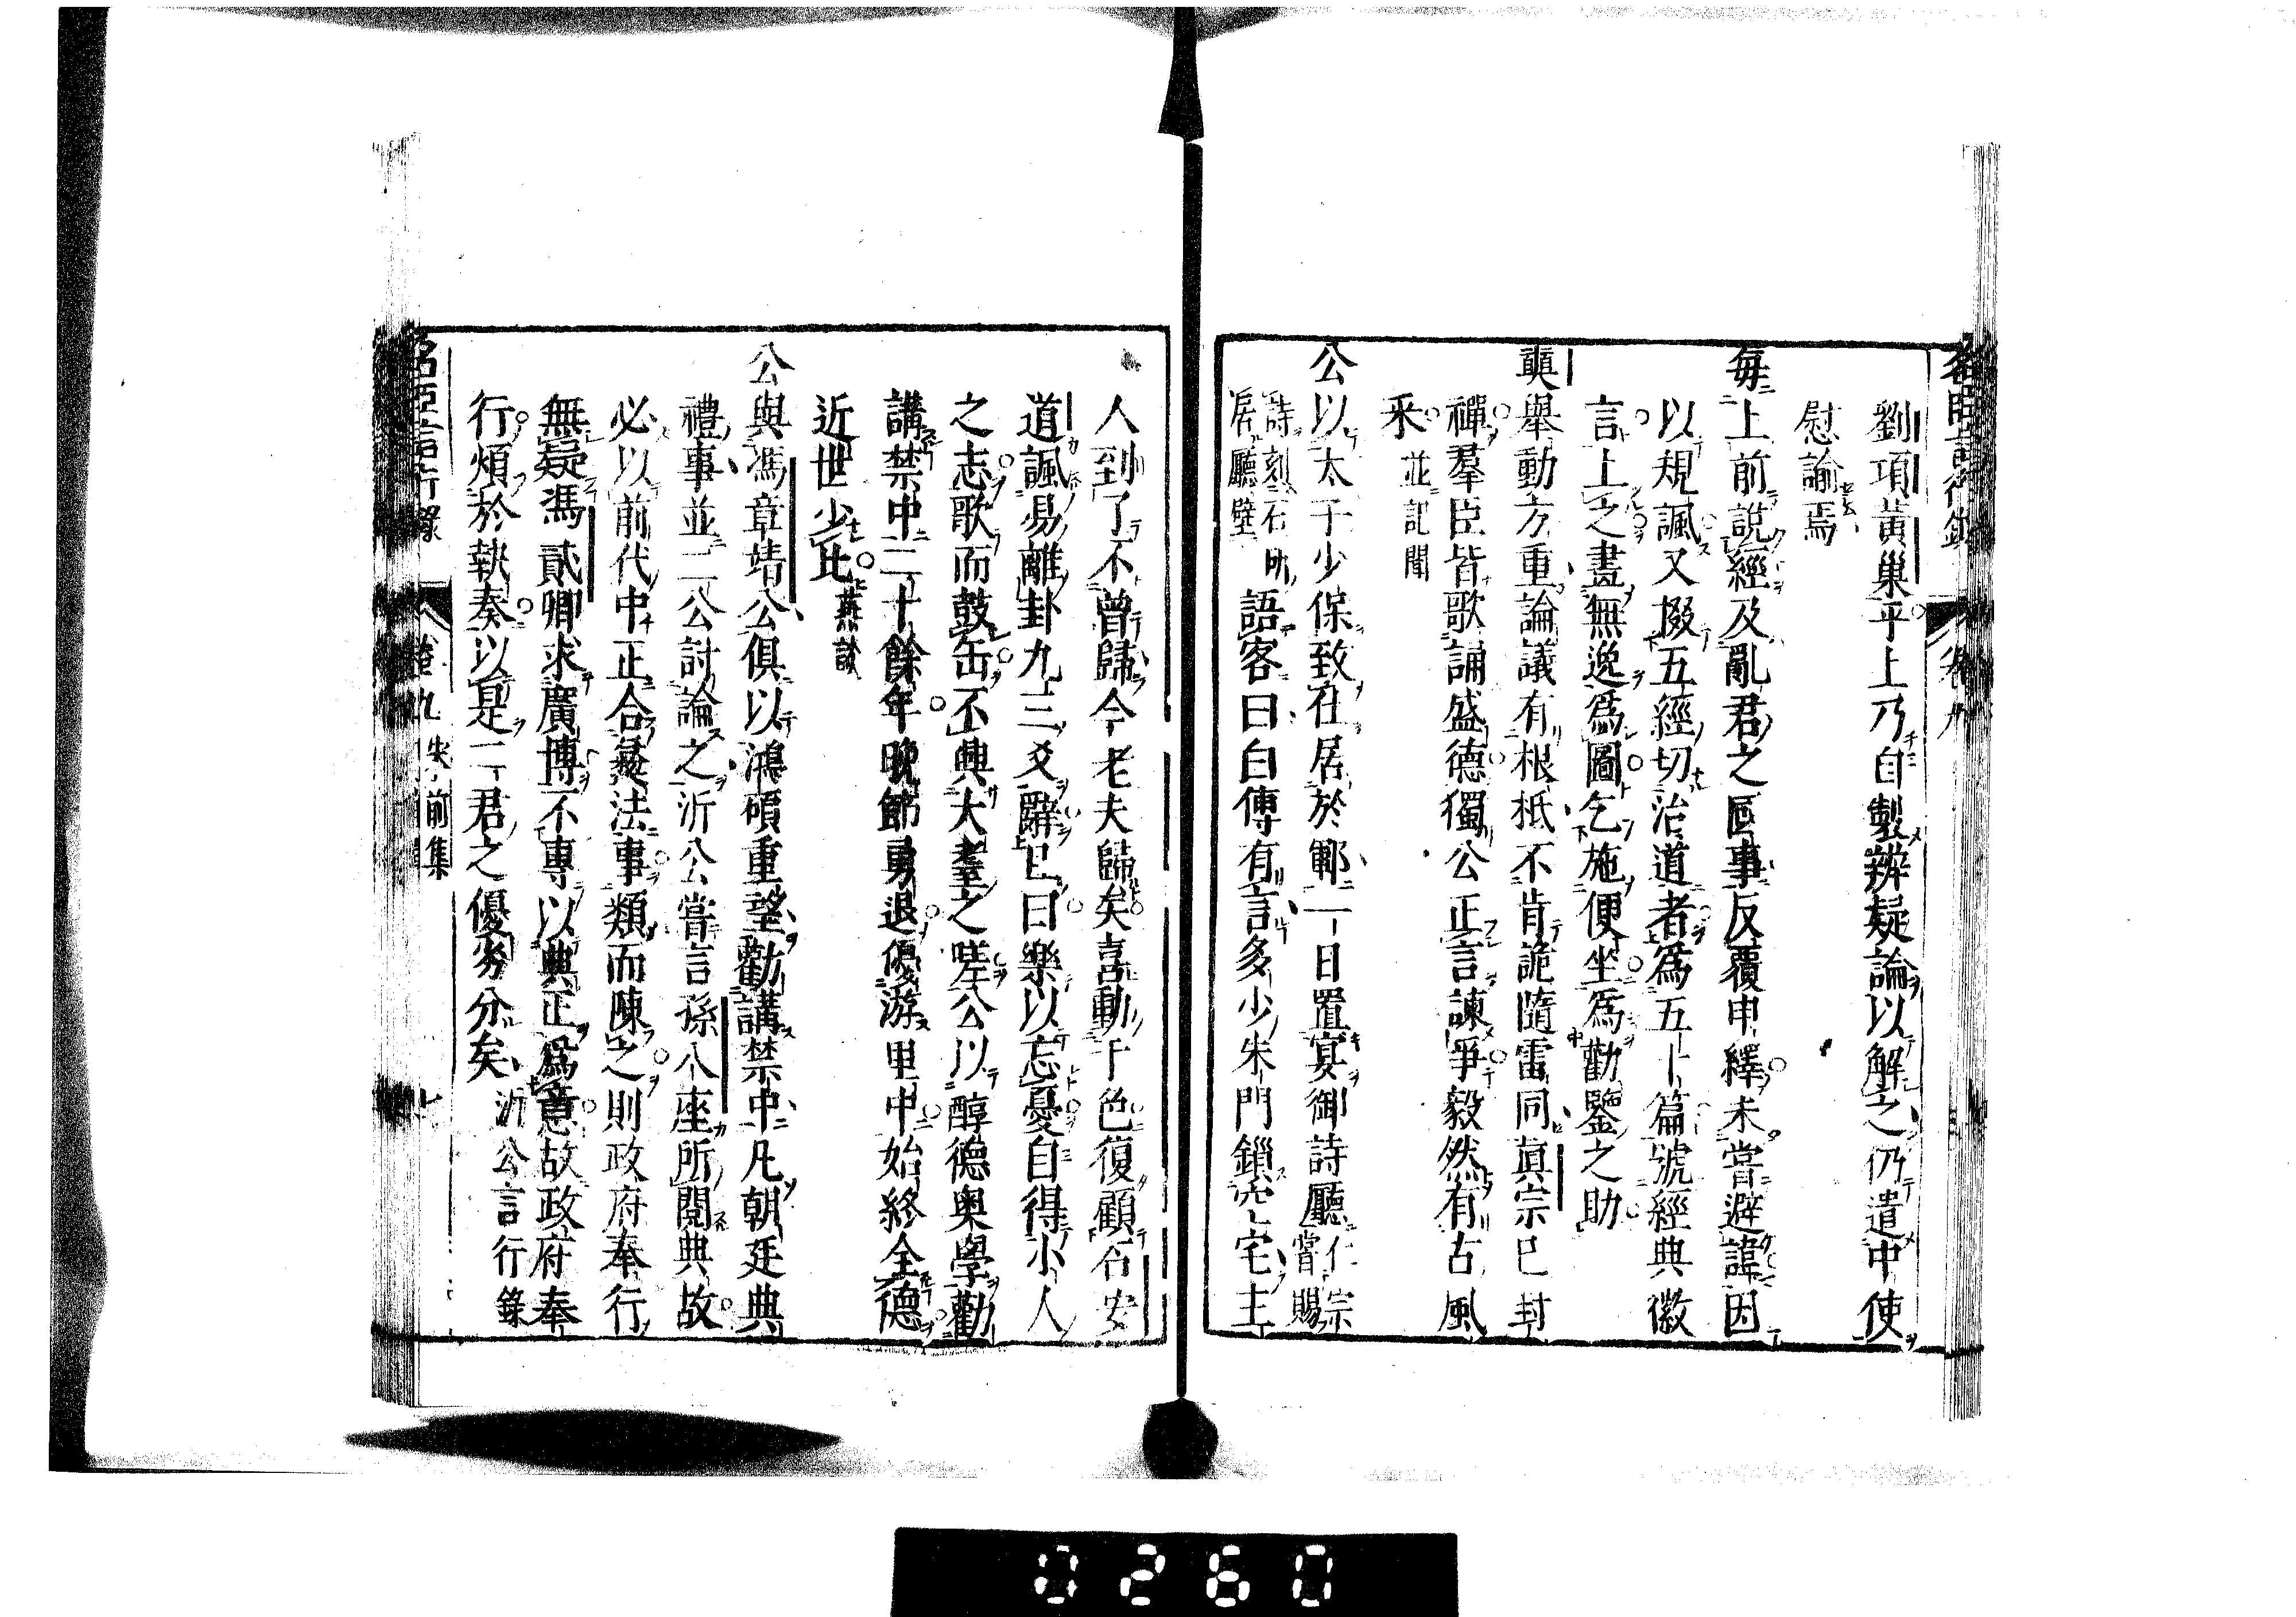 劉項黃巢平上乃自製辨疑論以解之仍遣中使
慰諭焉
每上前說經及亂君之區事反覆申繹未嘗避諱因
以規諷又掇五經切治道者爲五十篇號經典徽
言上之畫無逸爲圖乞施便坐爲勸鑒之助
奭舉動方重論議有根柢不肯詭隨雷同眞宗巳封
禪羣臣皆歌誦盛德獨公正言諫爭毅然有古風
采 並記聞
公以太子少保致在居於鄆一日置宴御詩廳 仁宗嘗賜
詩刻石所居廳壁 語客曰白傅有言多少朱門鎖空宅主
人到了不曾歸今老夫歸矣喜動于色復顧石安
道諷易離卦九三爻辭巳曰樂以忘憂自得小人
之志歌而鼓缶不興大耋之嗟公以醇德奧學勸
講禁中二十餘年晚節勇退優游里中始終全德
近世少比 燕談
公與馮章靖公俱以鴻碩重望勸講禁中凡朝廷典
禮事並二公討論之沂公嘗言孫八座所閱典故
必以前代中正合彝法事類而陳之則政府奉行
無疑馮貳卿求廣博不專以典正爲意故政府奉
行煩於執奏以是二君之優劣分矣 沂公言行錄
名臣言行錄 卷九 前集 七
0260